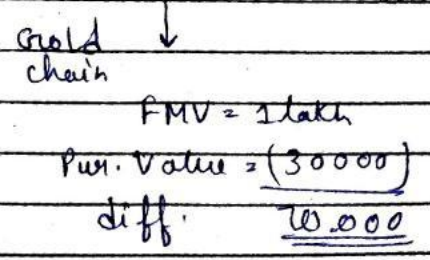 Gold
chain
FMV = 1 lakh
Pur. Value = (30000)
diff. 70.000